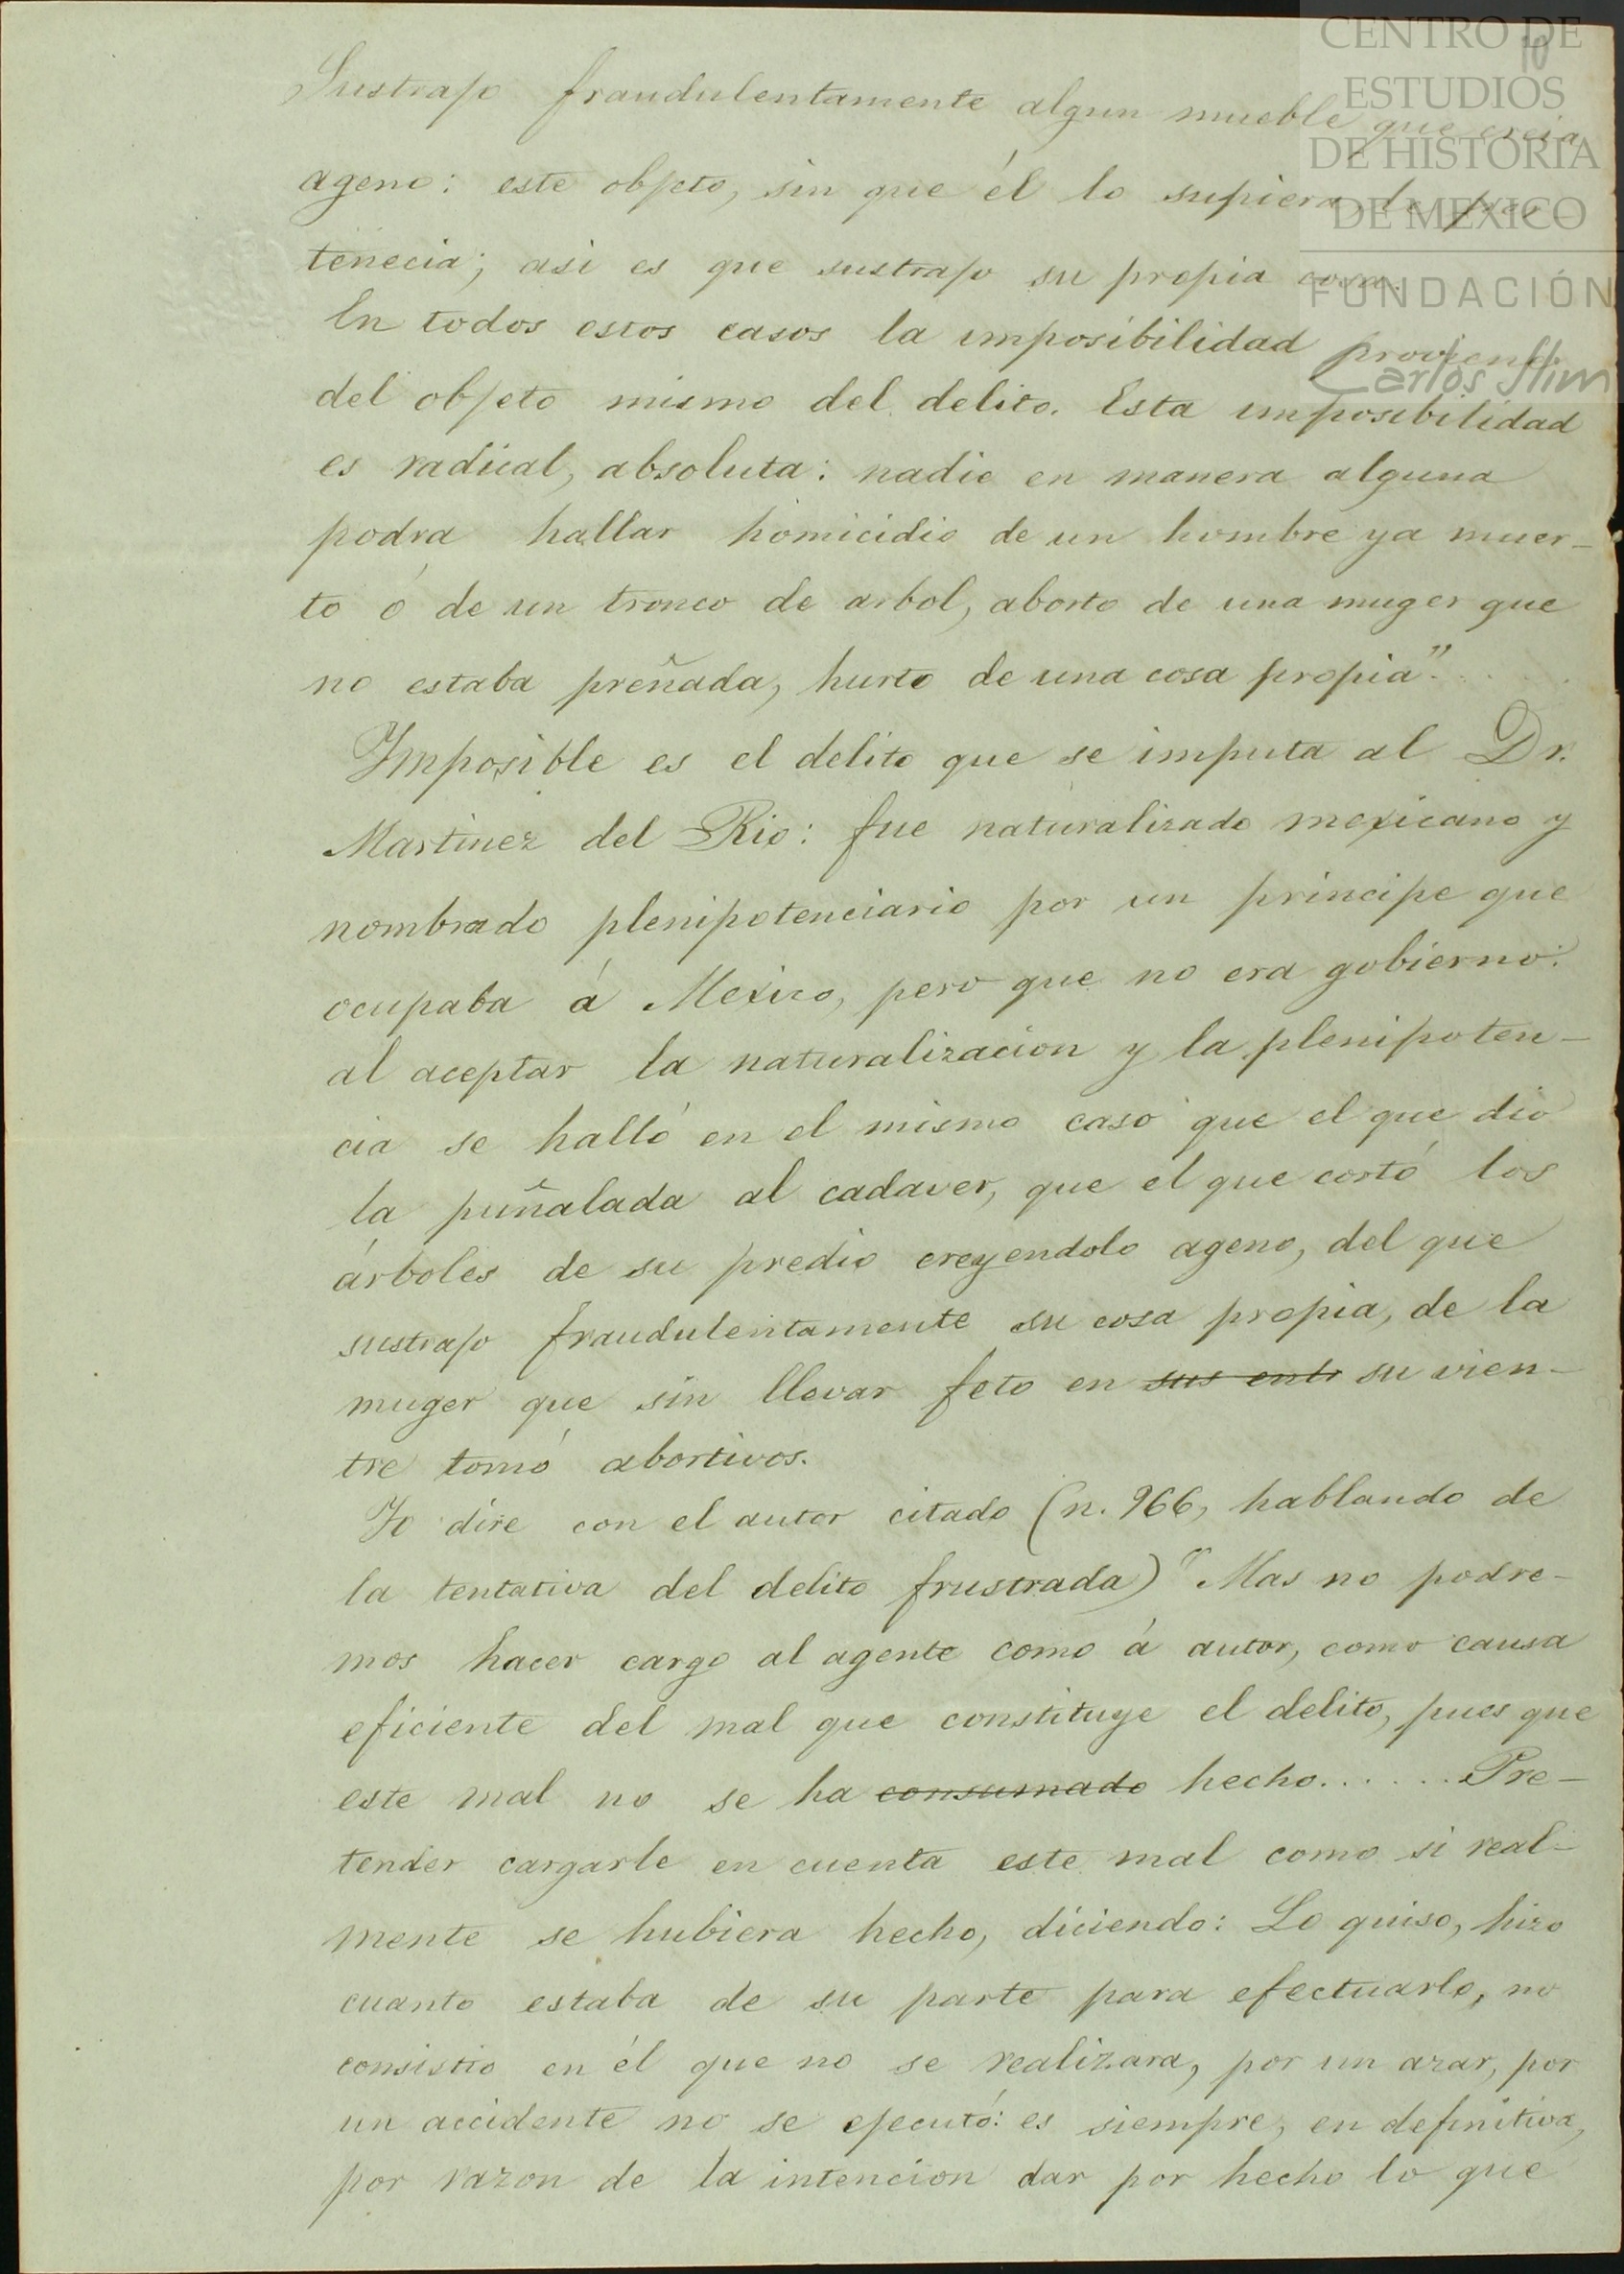 CENTRO DE
ESTUDIOS
DE HISTORIA
DE MEXICO
FUNDACIÓN
Carlos Slim
10
Sustrajo fraudulentamente algun mueble que creia
ageno: este objeto, sin que él lo supiera, le per-
tenecia; asi es que sustrajo su propia cosa.
En todos estos casos la imposibilidad proviene
del objeto mismo del delito. Esta imposibilidad
es radical, absoluta: nadie en manera alguna
podra hallar homicidio de un hombre ya muer-
to ó de un tronco de arbol, aborto de una muger que
no estaba preñada, hurto de una cosa propia". . . . .
Imposible es el delito que se imputa al Dr.
Martinez del Rio: fue naturalizado mexicano y
nombrado plenipotenciario por un principe que
ocupaba á Mexico, pero que no era gobierno:
al aceptar la naturalizacion y la plenipoten-
cia se halló en el mismo caso que el que dió
la puñalada al cadaver, que el que cortó los
árboles de su predio creyendolo ageno, del que
sustrajo fraudulentamente su cosa propia, de la
muger que sin llevar feto en sus entr su vien-
tre tomó abortivos.
Yo dire con el autor citado (n. 966, hablando de
la tentativa del delito frustrada) "Mas no podre-
mos hacer cargo al agente como á autor, como causa
eficiente del mal que constituye el delito, pues que
este mal no se ha consumado hecho. . . . . . Pre-
tender cargarle en cuenta este mal como si real-
mente se hubiera hecho, diciendo: Lo quiso, hizo
cuanto estaba de su parte para efectuarlo, no
consistio en él que no se realizara, por un azar, por
un accidente no se ejecutó: es siempre, en definitiva,
por razon de la intencion dar por hecho lo que